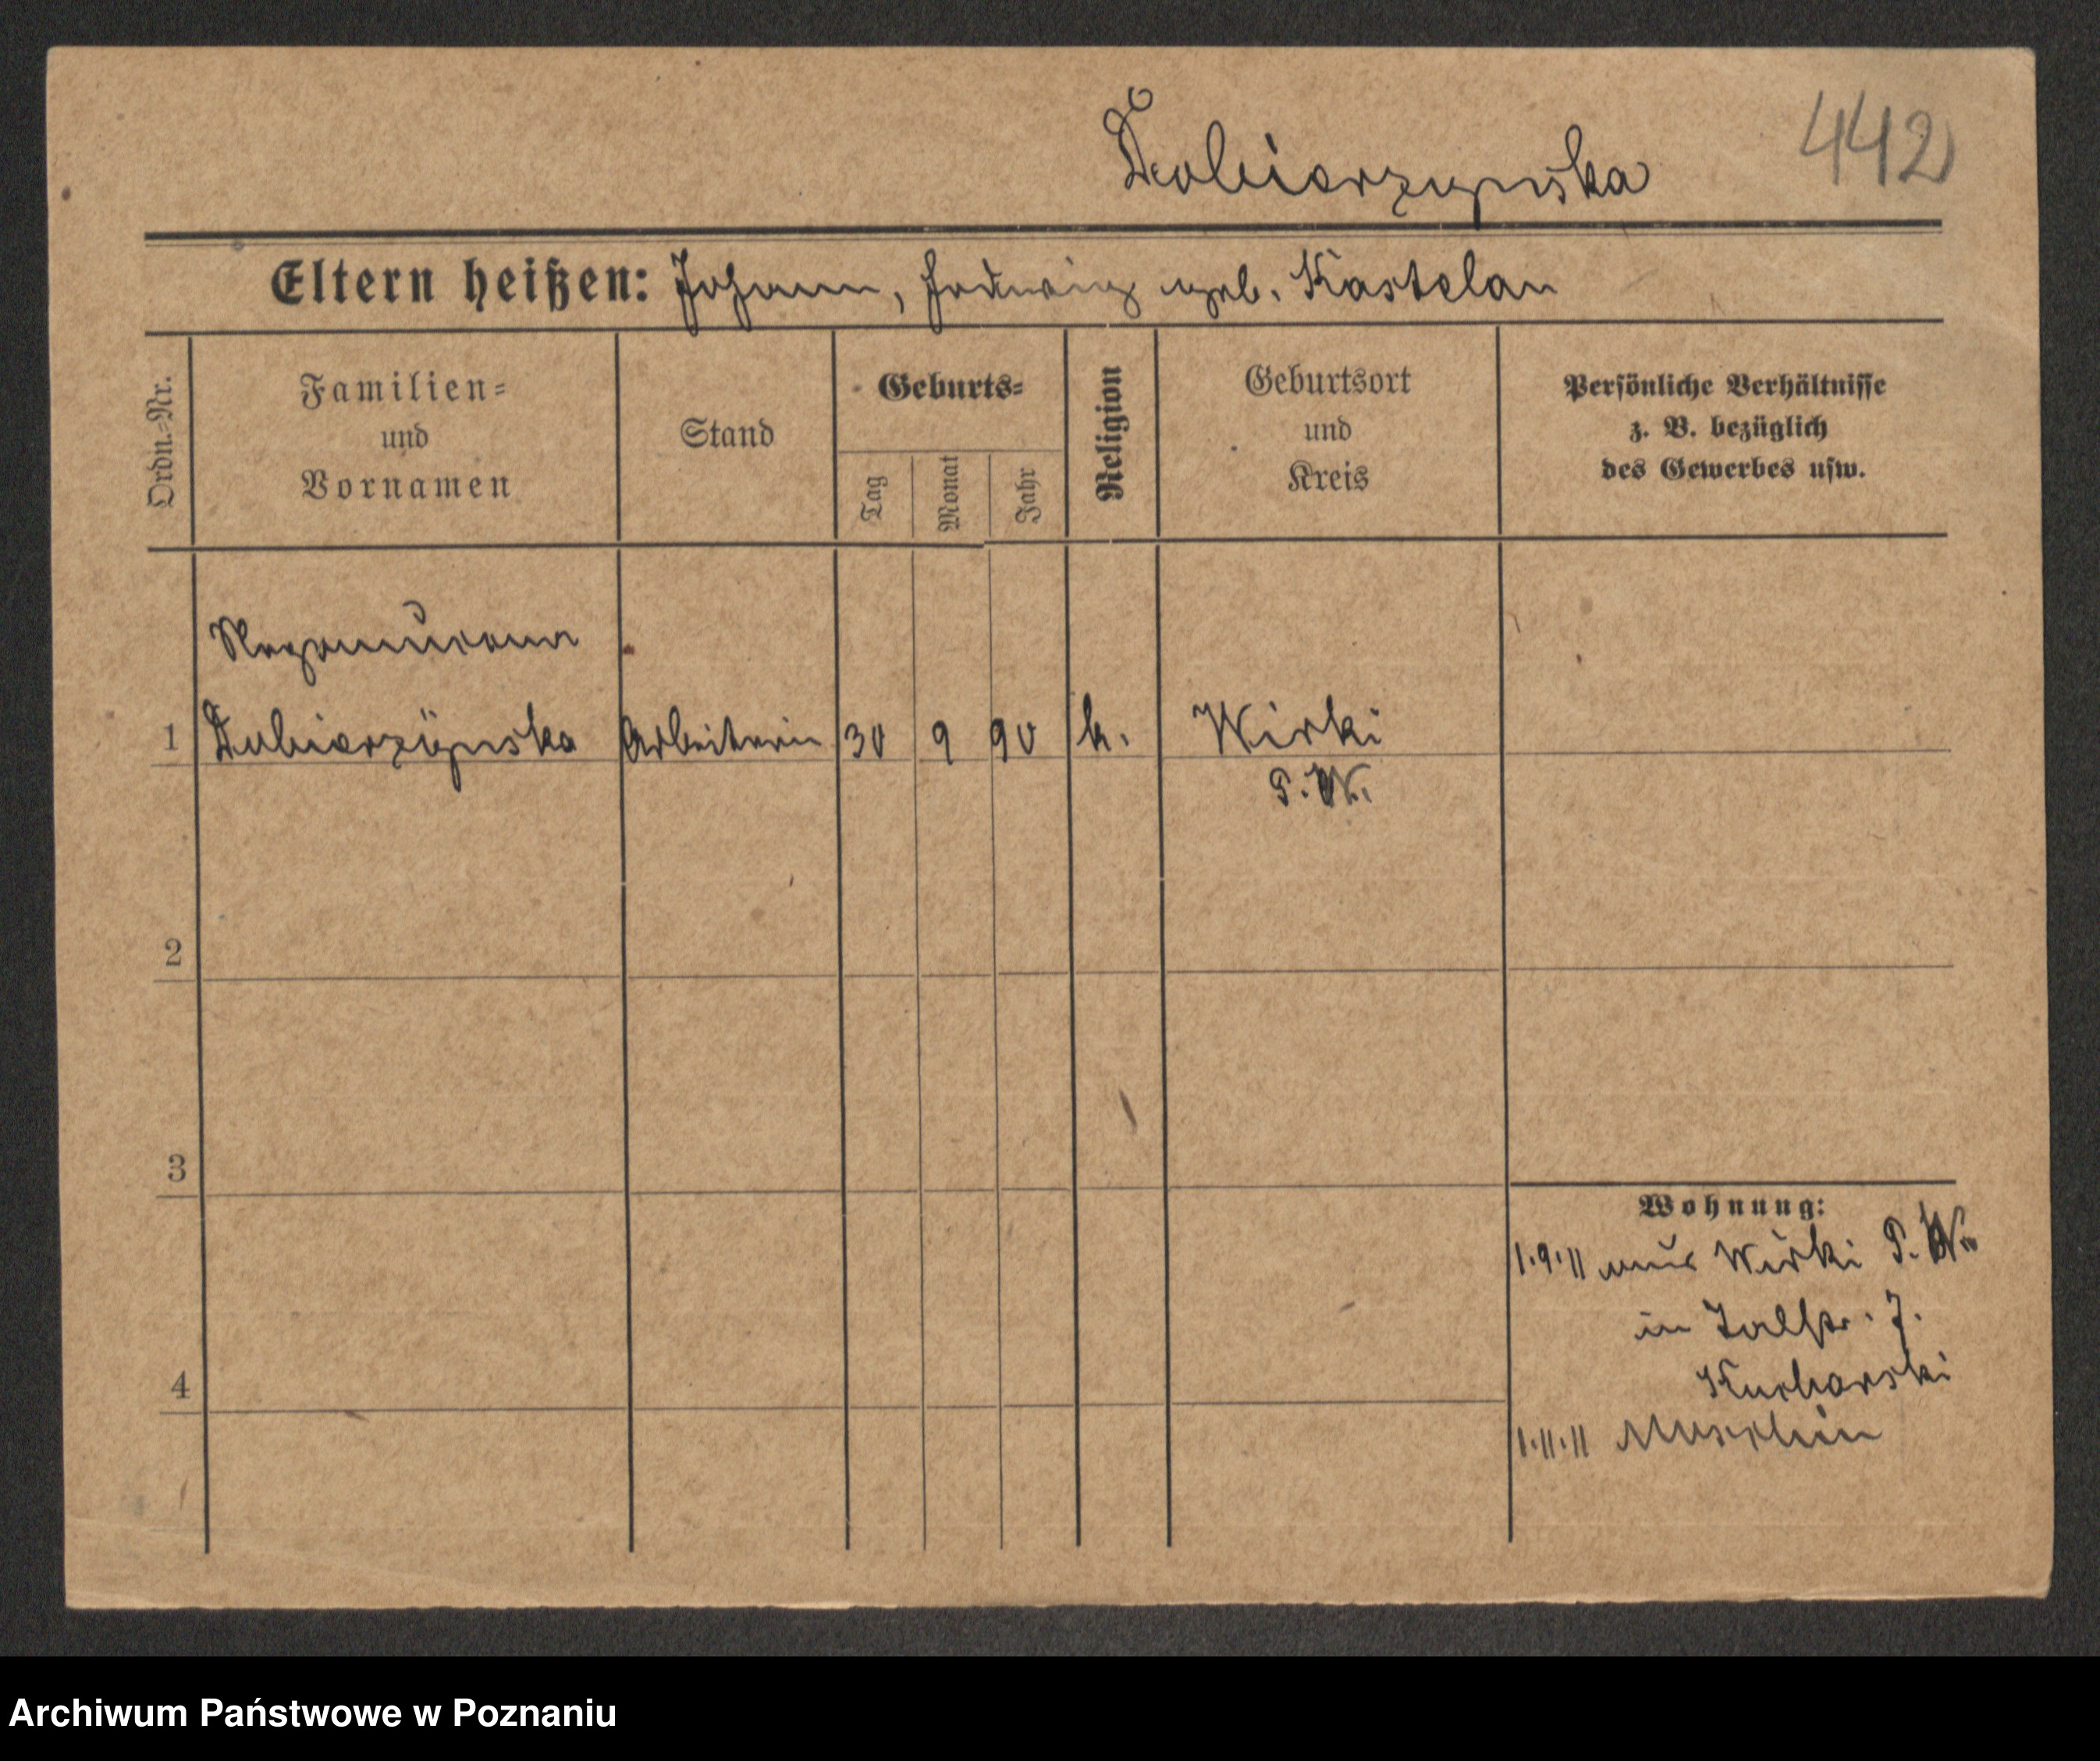 442
Dobierzynska
Eltern heißen: Johann, Hedwig geb. Kastelan
Ordn.-Nr.
Familien=
und
Vornamen
Stand
Geburts=
Tag
Monat
Jahr
Religion
Geburtsort
und
Kreis
Persönliche Verhältnisse
z. B. bezüglich
des Gewerbes usw.
1
Arbeiterin
30
9
90
k.
Wirki
P. W.
2
3
4
Wohnung:
1.9.11 aus Wirki P. W.
in Talstr. 7.
Kucharski
1.11.11 Moschin
Archiwum Państwowe w Poznaniu